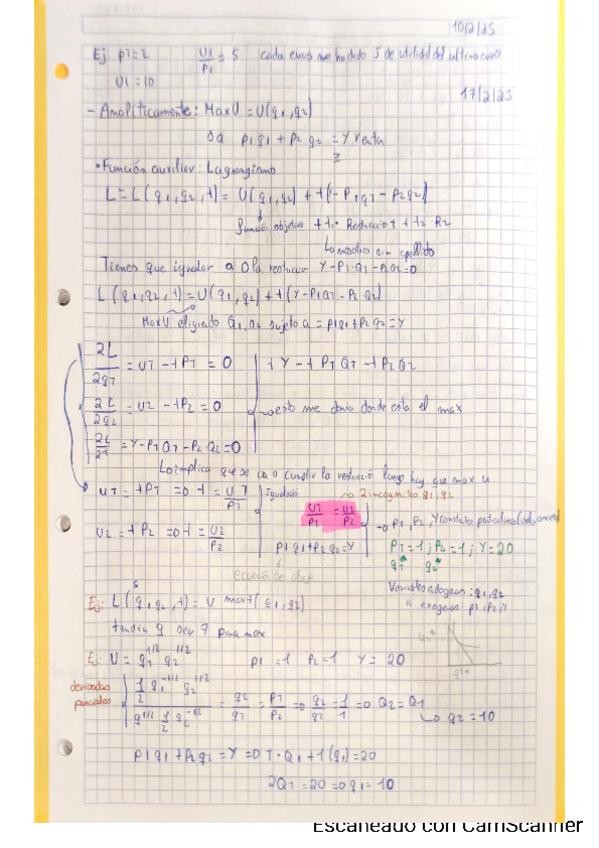 10/2/25
Ej p1=2 U1/P1 = 5 cada euro me ha dado 5 de utilidad del ultimo euro
U1=10
17/2/25
- Analíticamente: Max U = U(q1,q2)
sa p1q1 + p2 q2 = Y renta
• Función auxiliar: Lagrangiano
L = L(q1,q2,t) = U(q1,q2) + t(Y-P1q1-P2q2)
función objetivo + t1· Restricción 1 + t2 · R2
Tienes que igualar a 0 la restriccion Y-P1·Q1-P2Q2=0
L(q1,q2,t)=U(q1,q2)+t(Y-P1Q1-P2Q2)
MaxU eligiendo Q1,Q2 sujeto a = p1q1+p2q2=Y
2L/2q1 = U1 - tP1 = 0 tY - tP1Q1 - tP2Q2
2L/2q2 = U2 - tP2 = 0 esto me daria donde esta el max
2L/2t = Y-P1Q1-P2Q2=0
Lo implica que se va a cumplir la restricció luego hay que max u
U1 = tP1 =0 t = U1/P1 Igualación 2 incognitas q1,q2
U1/P1 = U2/P2
U2 = tP2 =0 t = U2/P2 p1q1+p2q2=Y
P1=1; P2=1; Y=20
q1* q2*
Variables endogenas: q1,q2
" exogenas p1,p2,Y
Ej: L(q1,q2,t) = U
tendria q ser 7 para max
Ej: U = q1^1/2 q2^1/2 p1=1 P2=1 Y=20
derivadas parciales
1/2 q1^-1/2 q2^1/2 / q1^1/2 1/2 q2^-1/2 = q2/q1 = P1/P2 =0 q2/q1 = 1/1 =0 Q2=Q1
q2=10
p1q1+p2q2=Y =0 1·Q1+1(q1)=20
2Q1=20 =0 q1=10
Escaneado con CamScanner